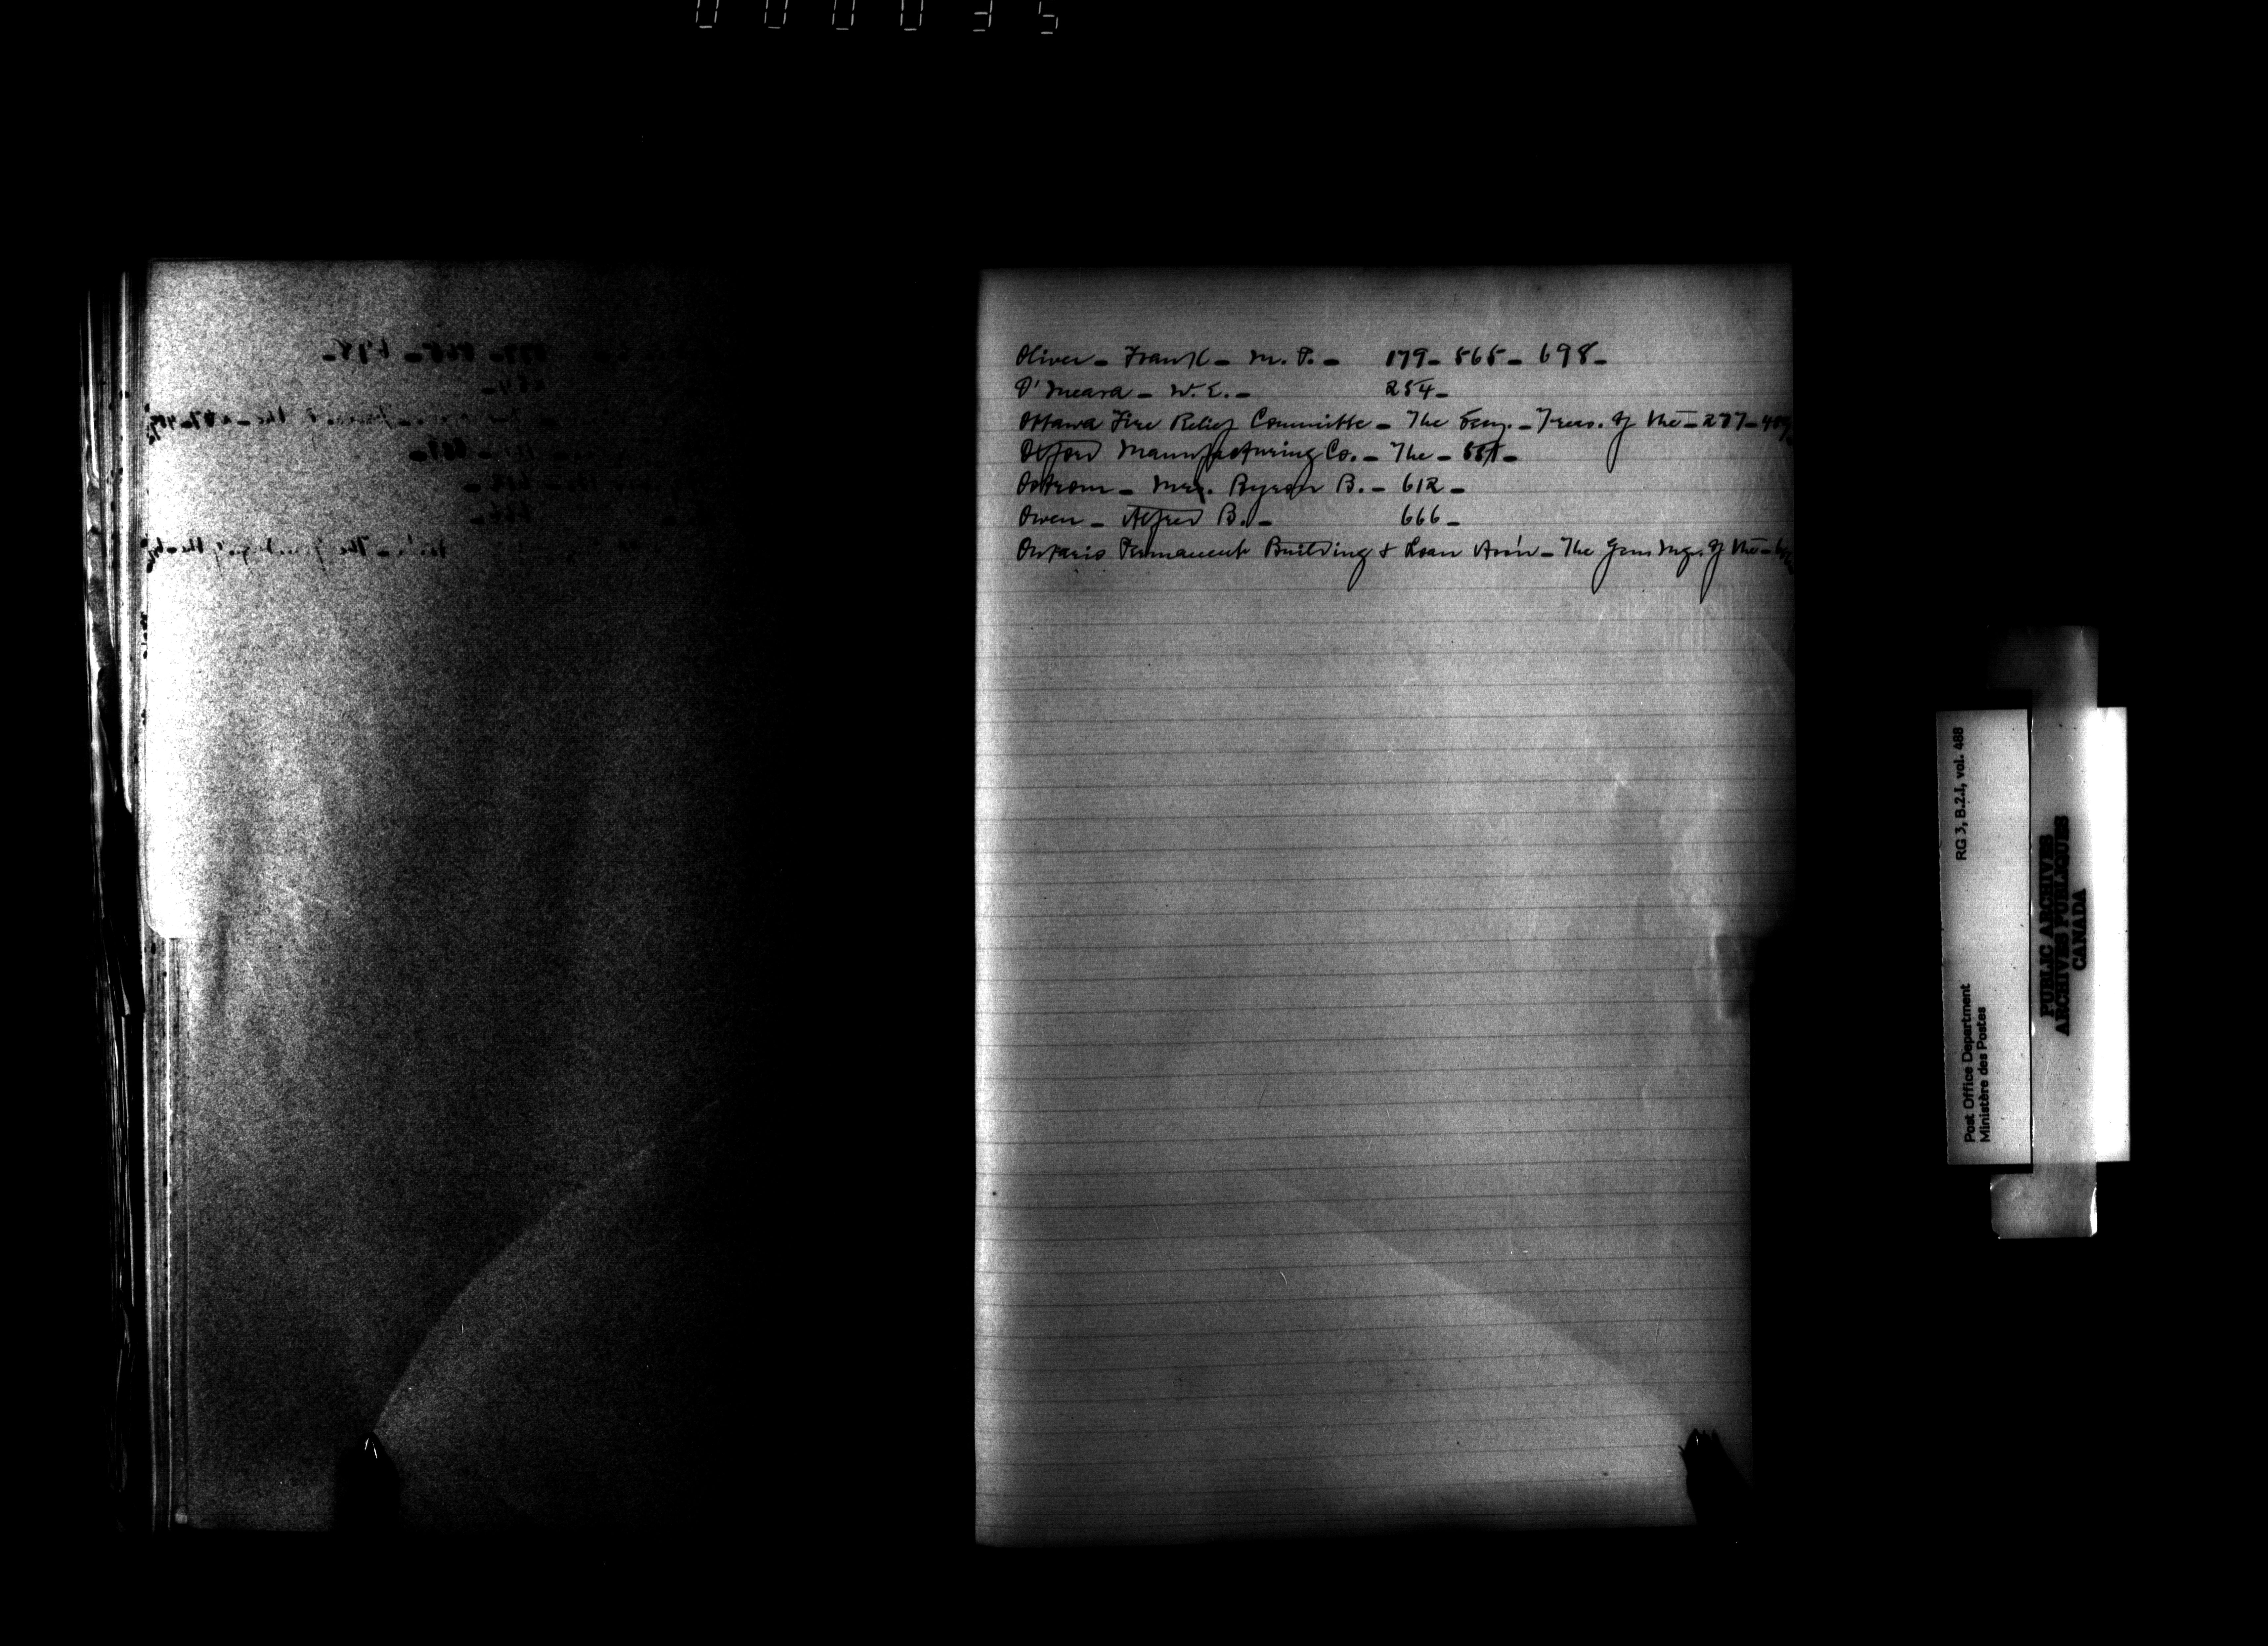 000035
Oliver - Frank - M. P. - 179 - 565 - 698 -
O'Meara - W. E. - 254 -
Ottawa Fire Relief Committee - The Secy. - Treas. of the - 277 -
Oxford Manufacturing Co. - The -
Ostrom - Mrs. Byron B. - 612 -
Owen - Alfred B. - 666 -
Ontario Permanent Building & Loan Ass'n - The Gen Mgr. of the -
RG 3, B.2.I, vol. 488
Post Office Department
Ministère des Postes
PUBLIC ARCHIVES
ARCHIVES PUBLIQUES
CANADA